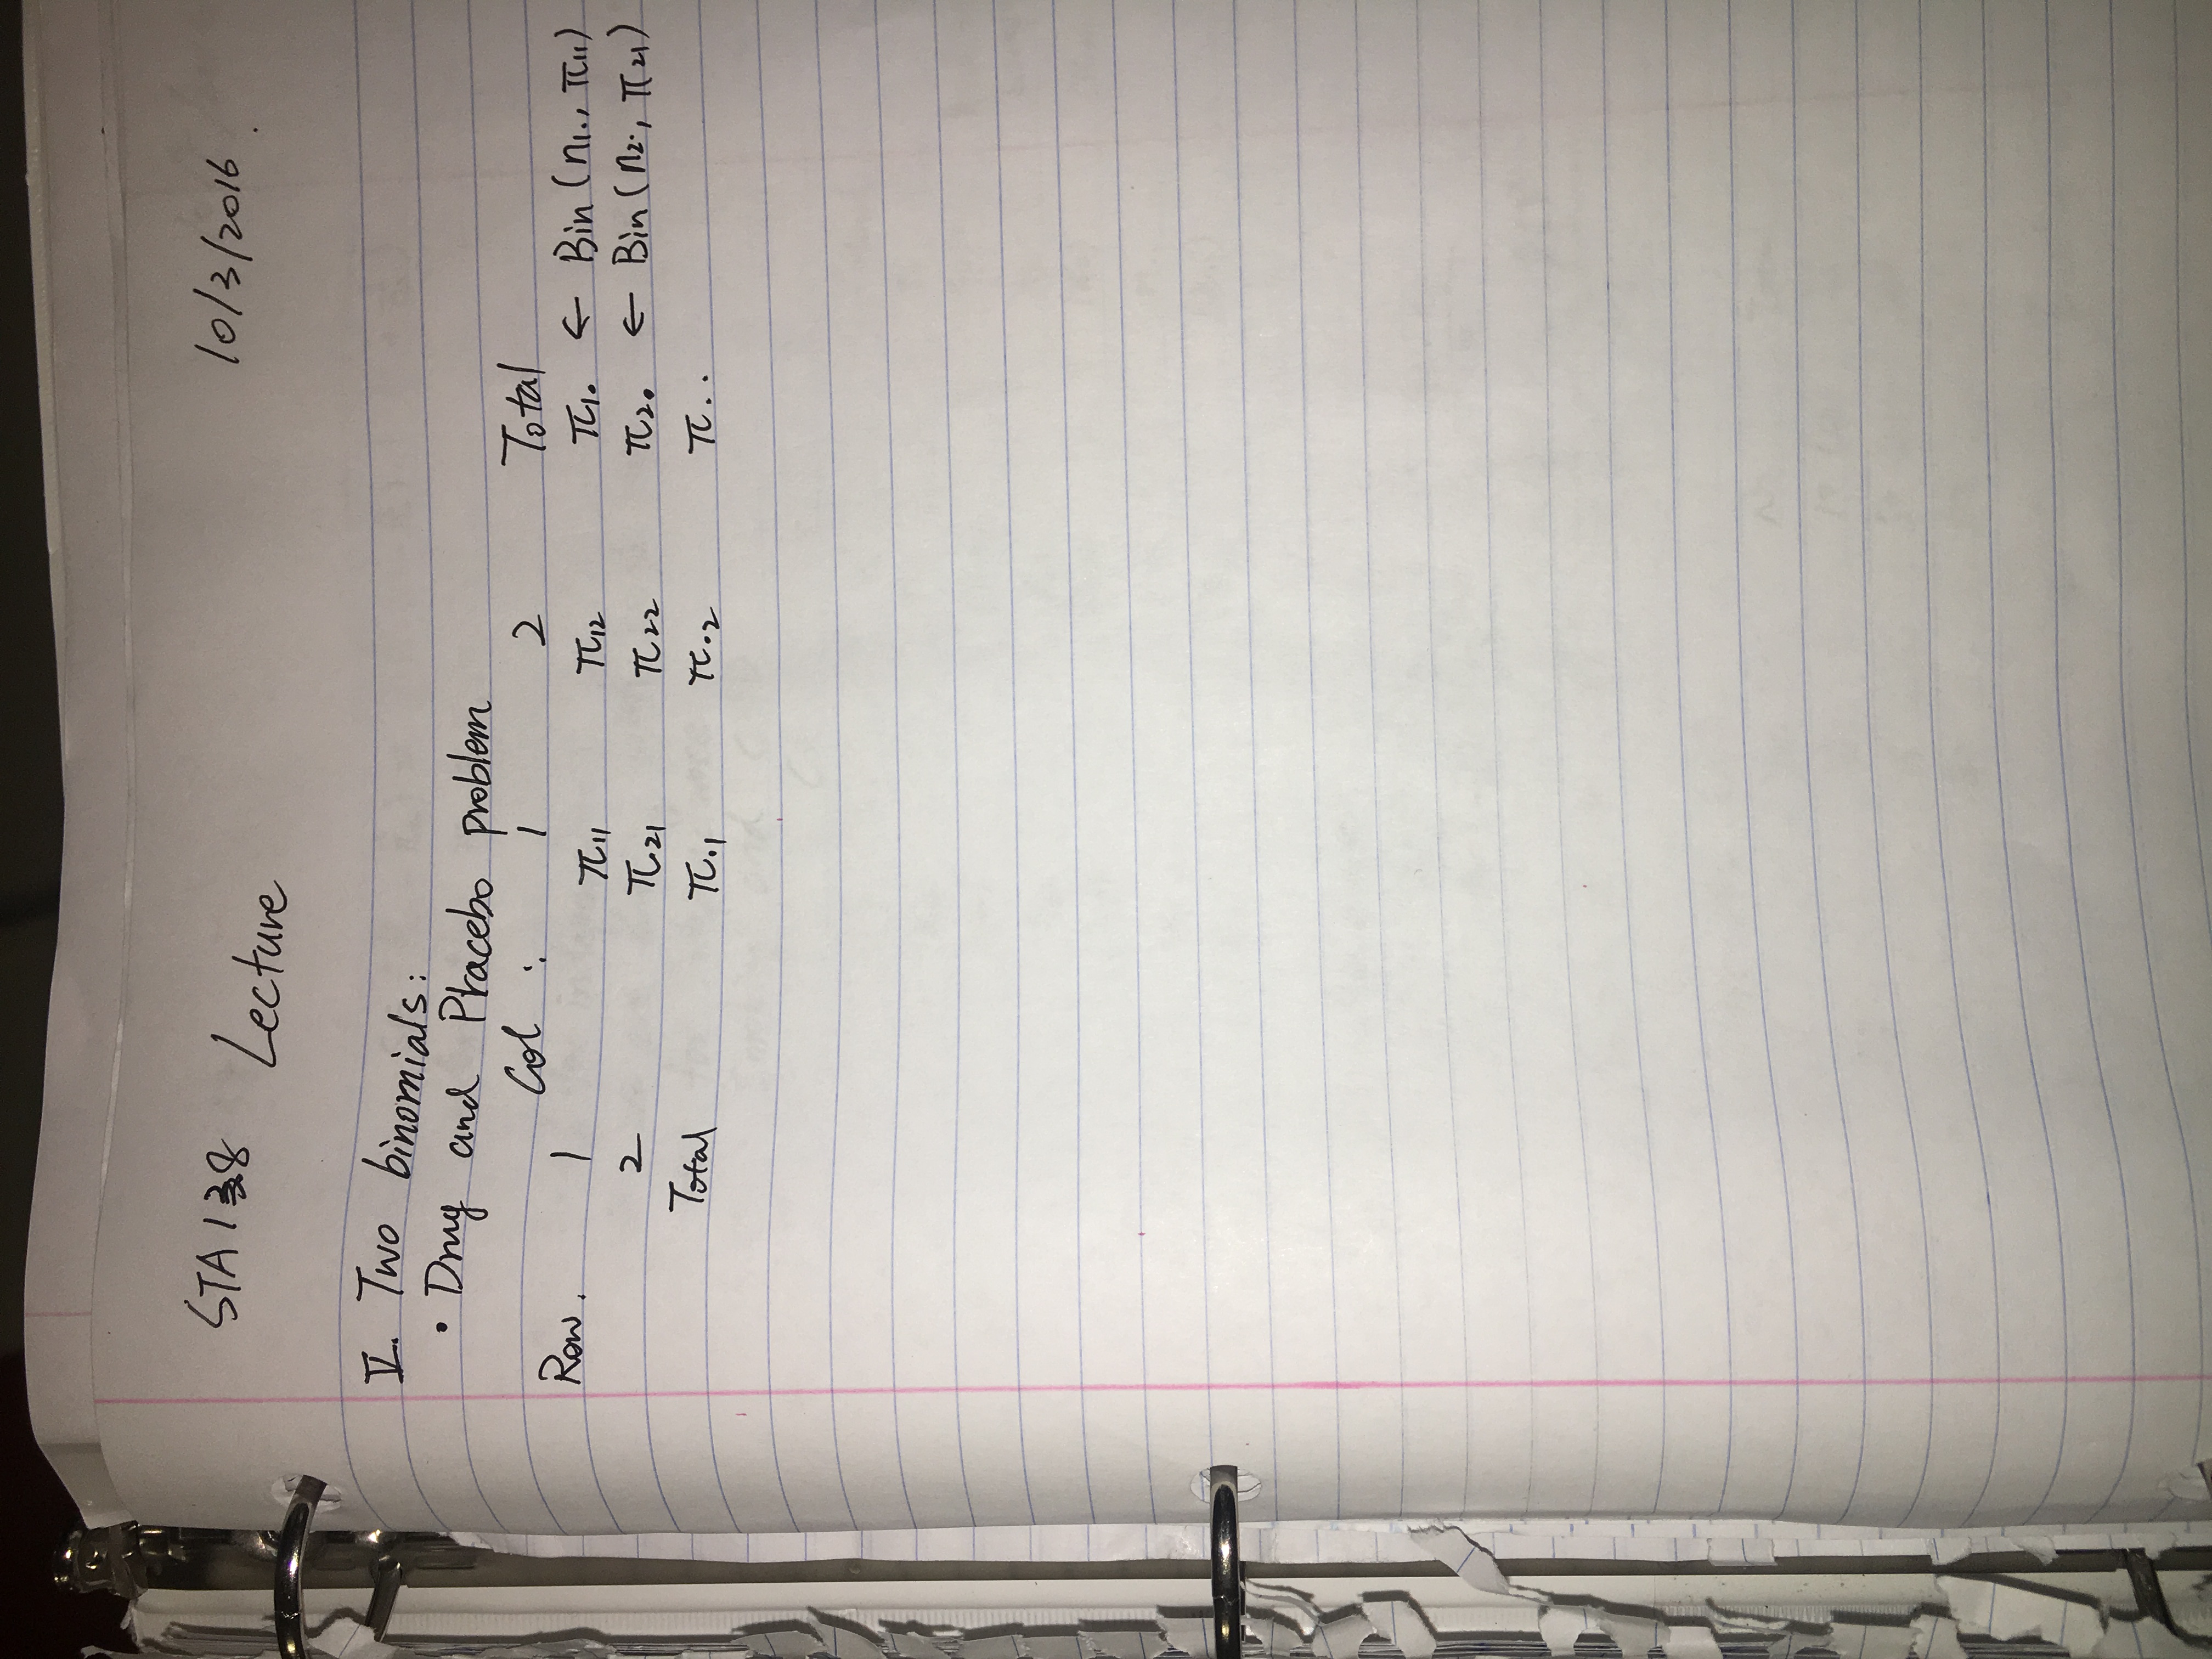 STA 138 Lecture 10/3/2016
V. Two binomials:
• Drug and Placebo problem
Col : 1 2 Total
Row. 1 π₁₁ π₁₂ π₁. ← Bin (n₁., π₁₁)
2 π₂₁ π₂₂ π₂. ← Bin (n₂., π₂₁)
Total π.₁ π.₂ π..